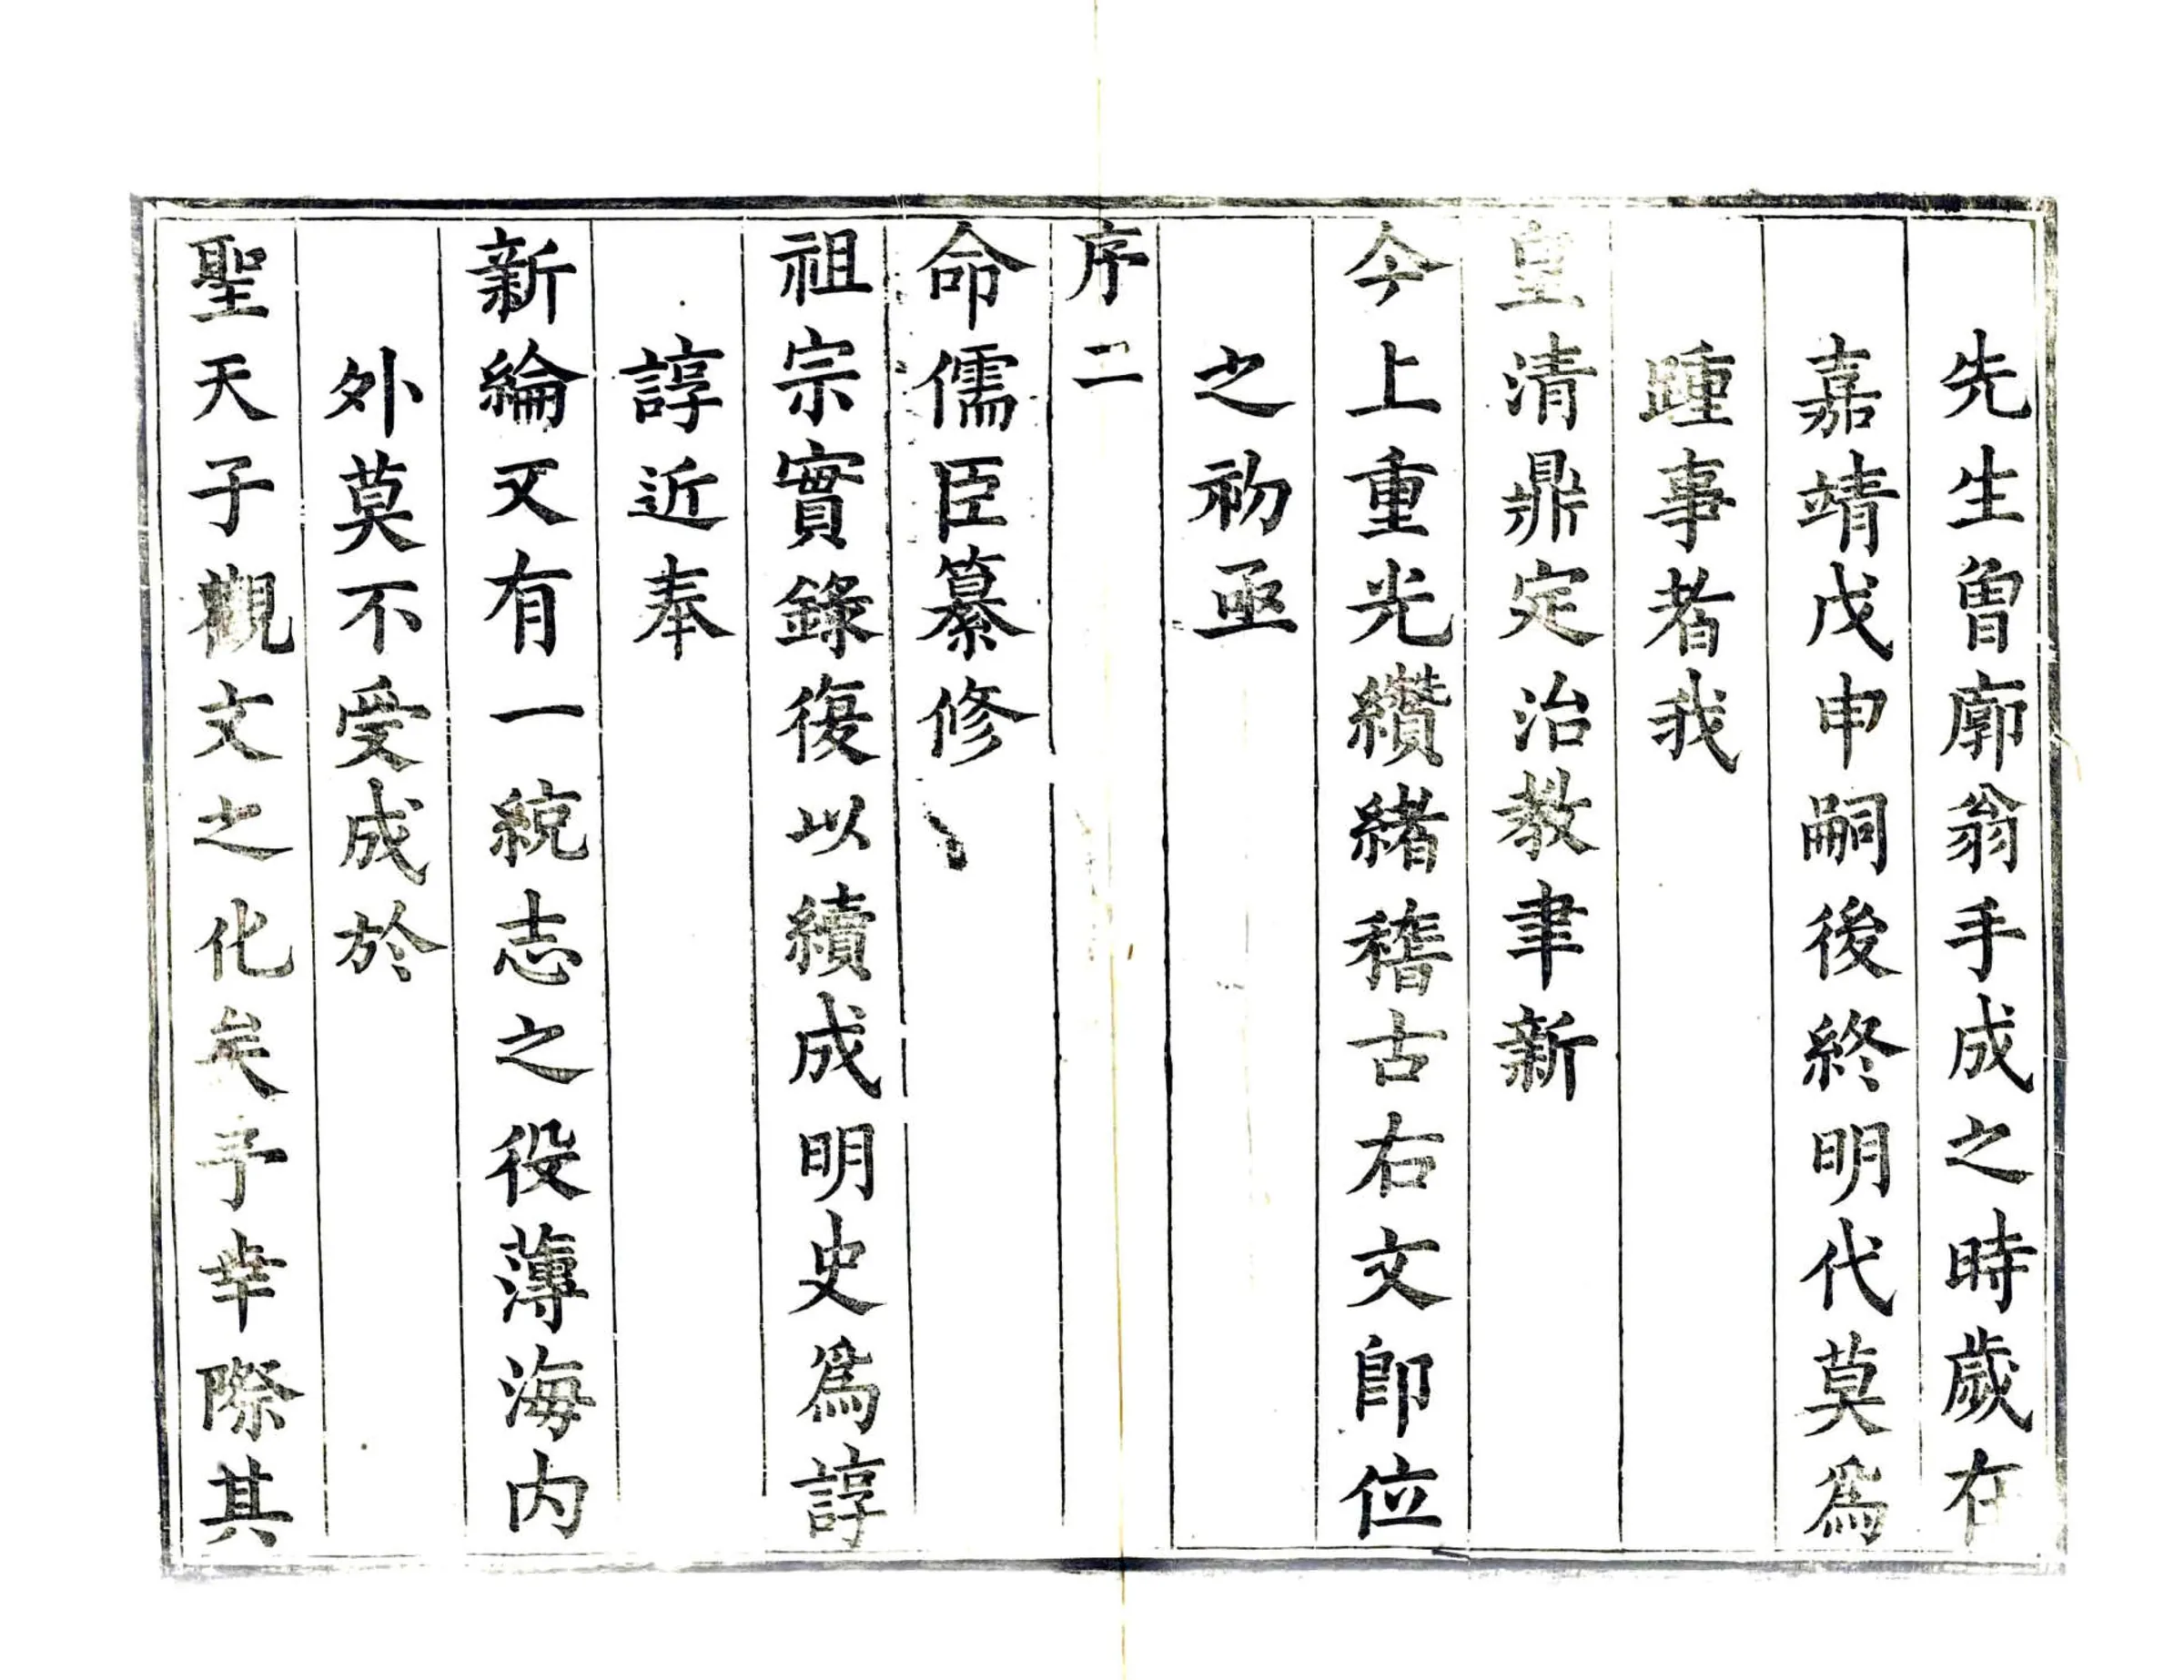 先生曽廓翁手成之時歲在
嘉靖戊申嗣後終明代莫爲
踵事者我
皇清鼎定治教聿新
今上重光纘緒稽古右文卽位
之初亟
序二
命儒臣纂修
祖宗實錄復以續成明史爲諄
諄近奉
新綸又有一統志之役薄海内
外莫不受成於
聖天子觀文之化矣予幸際其